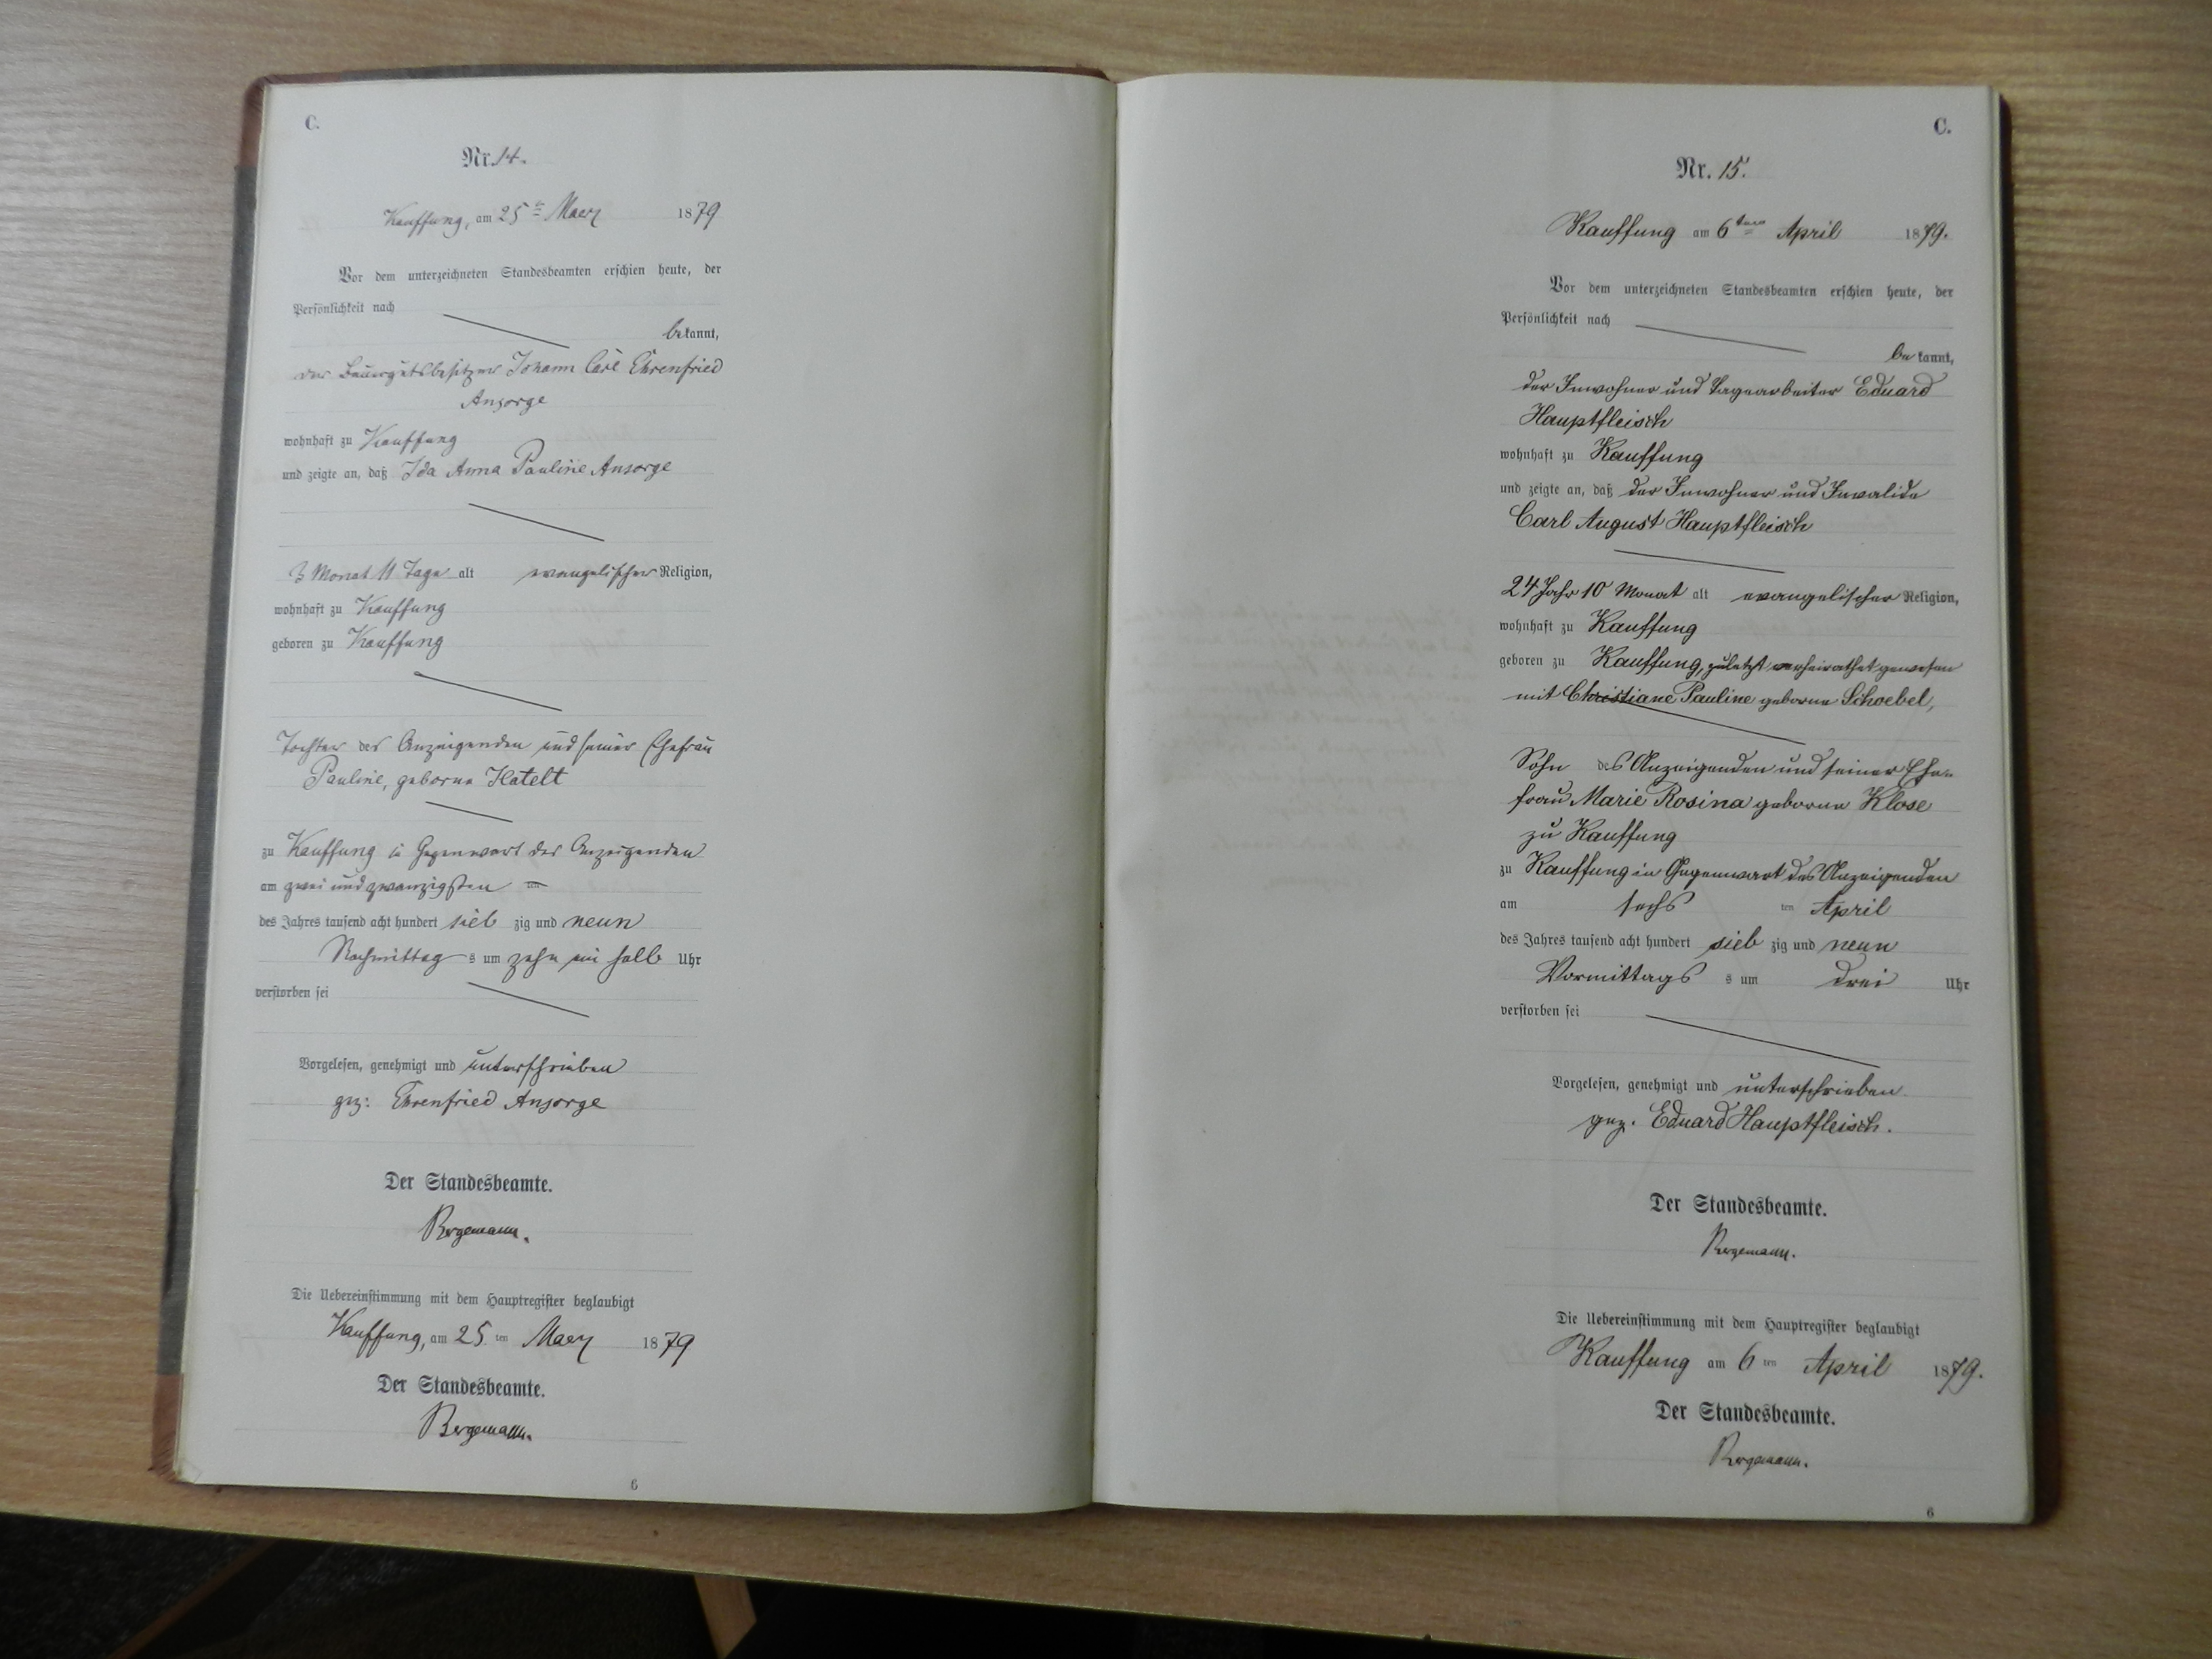 C.
Nr. 14.
Kauffung, am 25ten Maerz 1879
Vor dem unterzeichneten Standesbeamten erschien heute, der
Persönlichkeit nach
bekannt,
der Bauergutsbesitzer Johann Carl Ehrenfried
Ansorge
wohnhaft zu Kauffung
und zeigte an, daß Ida Anna Pauline Ansorge
3 Monat 11 Tage alt evangelischer Religion,
wohnhaft zu Kauffung
geboren zu Kauffung
Tochter des Anzeigenden und seiner Ehefrau
Pauline, geborne Hatelt
zu Kauffung in Gegenwart des Anzeigenden
am zwei und zwanzigsten ten
des Jahres tausend acht hundert siebzig und neun
Nachmittags um zehn ein halb Uhr
verstorben sei
Vorgelesen, genehmigt und unterschrieben
gez: Ehrenfried Ansorge
Der Standesbeamte.
Bergemann.
Die Uebereinstimmung mit dem Hauptregister beglaubigt
Kauffung, am 25 ten Maerz 1879
Der Standesbeamte.
Bergemann.
6
C.
Nr. 15.
Kauffung am 6ten April 1879.
Vor dem unterzeichneten Standesbeamten erschien heute, der
Persönlichkeit nach
bekannt,
der Inwohner und Tagearbeiter Eduard
Hauptfleisch
wohnhaft zu Kauffung
und zeigte an, daß der Inwohner und Invalide
Carl August Hauptfleisch
24 Jahr 10 Monat alt evangelischer Religion,
wohnhaft zu Kauffung
geboren zu Kauffung, zuletzt verheirathet gewesen
mit Christiane Pauline geborne Schoebel,
Sohn des Anzeigenden und seiner Ehe-
frau Marie Rosina geborne Klose
zu Kauffung
zu Kauffung in Gegenwart des Anzeigenden
am sechs ten April
des Jahres tausend acht hundert siebzig und neun
Vormittags s um drei Uhr
verstorben sei
Vorgelesen, genehmigt und unterschrieben
gez. Eduard Hauptfleisch.
Der Standesbeamte.
Bergemann.
Die Uebereinstimmung mit dem Hauptregister beglaubigt
Kauffung am 6 ten April 1879.
Der Standesbeamte.
Bergemann.
6